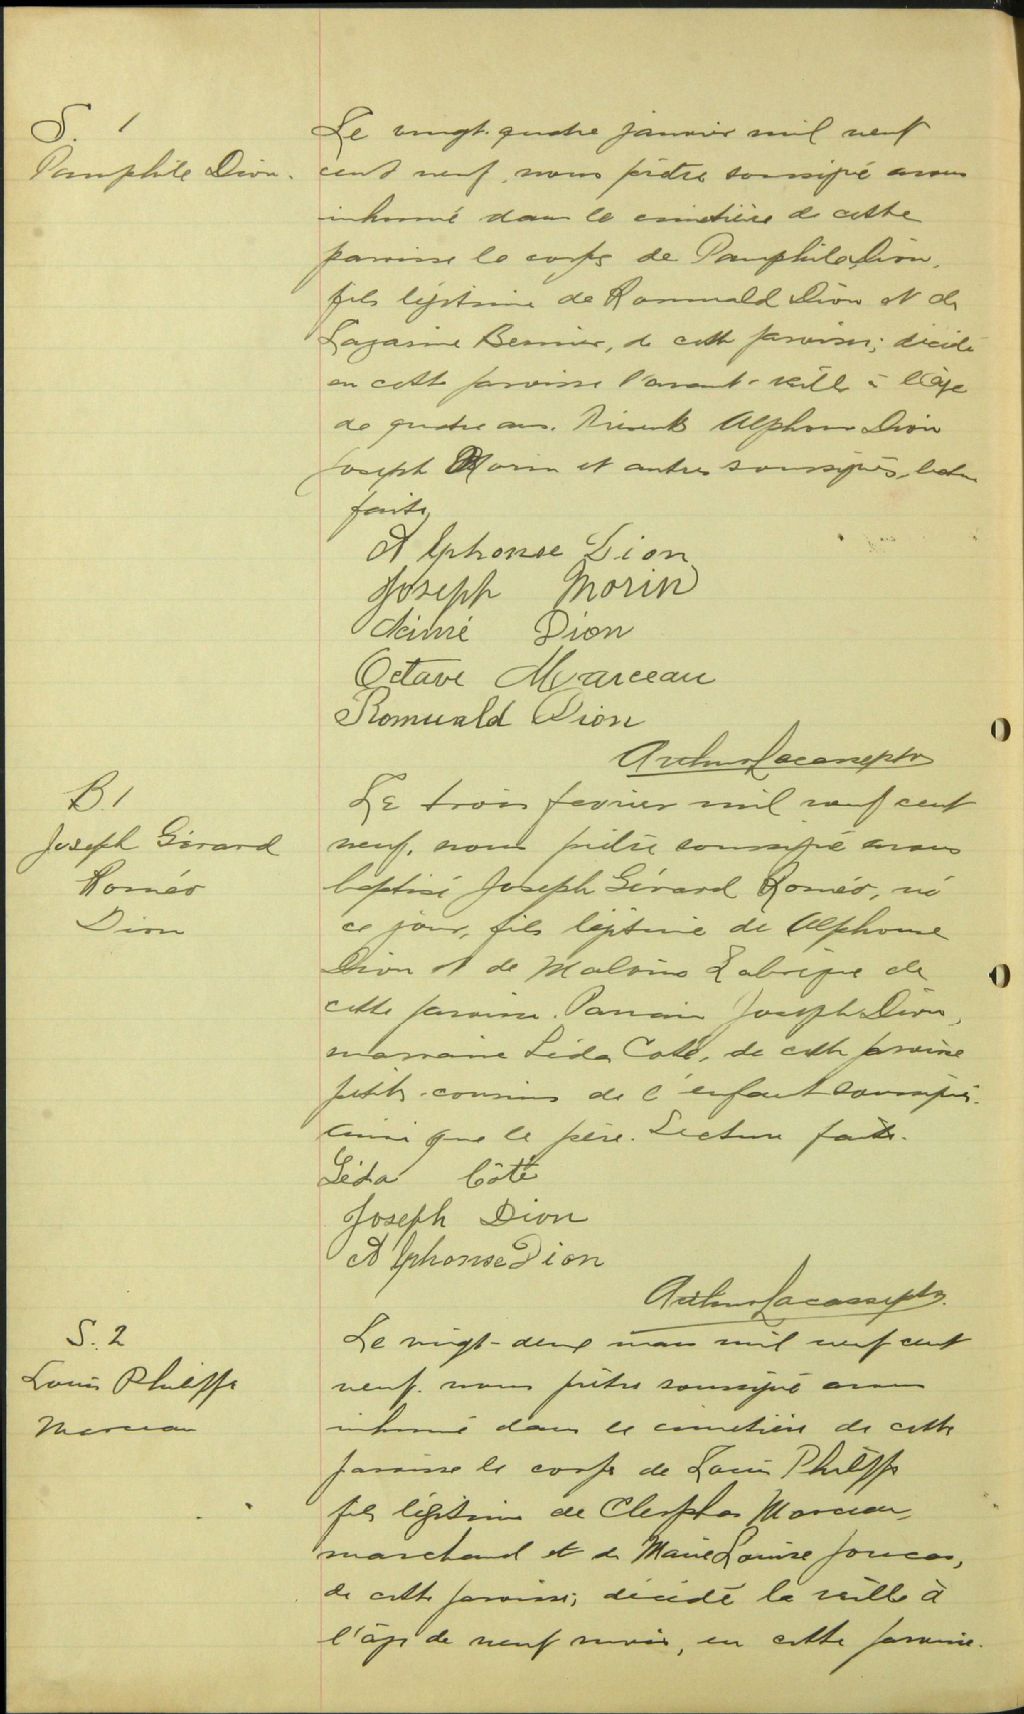 S. 1
Pamphile Dion.
Le vingt-quatre janvier mil neuf
cent neuf, nous prêtre soussigné avons
inhumé dans le cimetière de cette
paroisse le corps de Pamphile Dion,
fils légitime de Romuald Dion et de
Lazarine Bernier, de cette paroisse; décédé
en cette paroisse l'avant-veille à l'âge
de quatre ans. Présents Alphonse Dion
Joseph Morin et autres soussignés, lecture
faite,
Alphonse Dion
Joseph Morin
Aimé Dion
Octave Marceau
Romuald Dion
Arthur Lacasse ptre
B. 1
Joseph Gérard
Roméo
Dion
Le trois fevrier mil neuf cent
neuf, nous prêtre soussigné avons
baptisé Joseph Gérard Roméo, né
ce jour, fils légitime de Alphonse
Dion et de Malvina Labrèque de
cette paroisse. Parrain Joseph Dion,
marraine Léda Coté, de cette paroisse
petits-cousins de l'enfant soussignés.
ainsi que le père. Lecture faite.
Léda Côté
Joseph Dion
Alphonse Dion
Arthur Lacasse ptre.
S. 2
Louis Philippe
Marceau
Le vingt-deux mars mil neuf cent
neuf. nous prêtre soussigné avons
inhumé dans le cimetière de cette
paroisse le corps de Louis Philippe
fils légitime de Cléophas Marceau,
marchand et de Marie Louise Joncas,
de cette paroisse; décédé la veille à
l'âge de neuf mois, en cette paroisse.